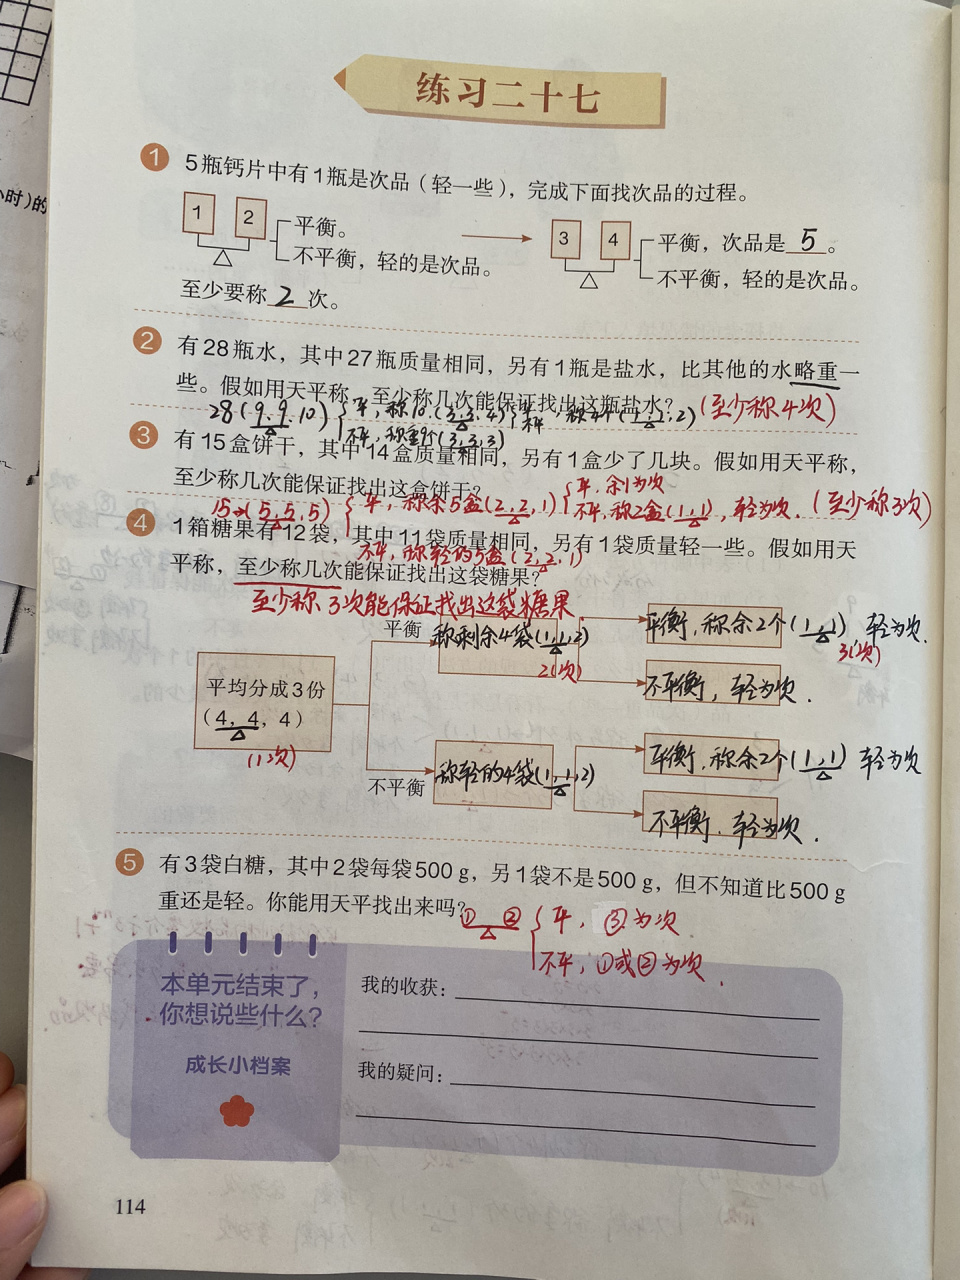 练习二十七
小时)的
1 5瓶钙片中有1瓶是次品（轻一些），完成下面找次品的过程。
1 2 平衡。
不平衡，轻的是次品。
3 4 平衡，次品是 5 。
不平衡，轻的是次品。
至少要称 2 次。
2 有28瓶水，其中27瓶质量相同，另有1瓶是盐水，比其他的水略重一
些。假如用天平称，至少称几次能保证找出这瓶盐水？(至少称4次)
28(9,9,10) 平,称10.(3,3,4) 平 称4个(1,1,2)
不平,称重9个(3,3,3)
3 有15盒饼干，其中14盒质量相同，另有1盒少了几块。假如用天平称，
至少称几次能保证找出这盒饼干？
15→(5,5,5) 平,称余5盒(2,2,1) 平,余1为次
不平,称2盒(1,1),轻为次. (至少称3次)
不平,称轻的5盒(2,2,1)
4 1箱糖果有12袋，其中11袋质量相同，另有1袋质量轻一些。假如用天
平称，至少称几次能保证找出这袋糖果？
至少称3次能保证找出这袋糖果.
平均分成3份
(4, 4, 4)
(1次)
平衡
称剩余4袋(1,1,2)
2(次)
平衡,称余2个(1,1) 轻为次.
3(次)
不平衡,轻为次.
不平衡
称轻的4袋(1,1,2)
平衡,称余2个(1,1) 轻为次
不平衡.轻为次.
5 有3袋白糖，其中2袋每袋500 g，另1袋不是500 g，但不知道比500 g
重还是轻。你能用天平找出来吗？
① ② 平, ③为次.
不平,①或②为次.
本单元结束了，
你想说些什么？
成长小档案
我的收获：
我的疑问：
114